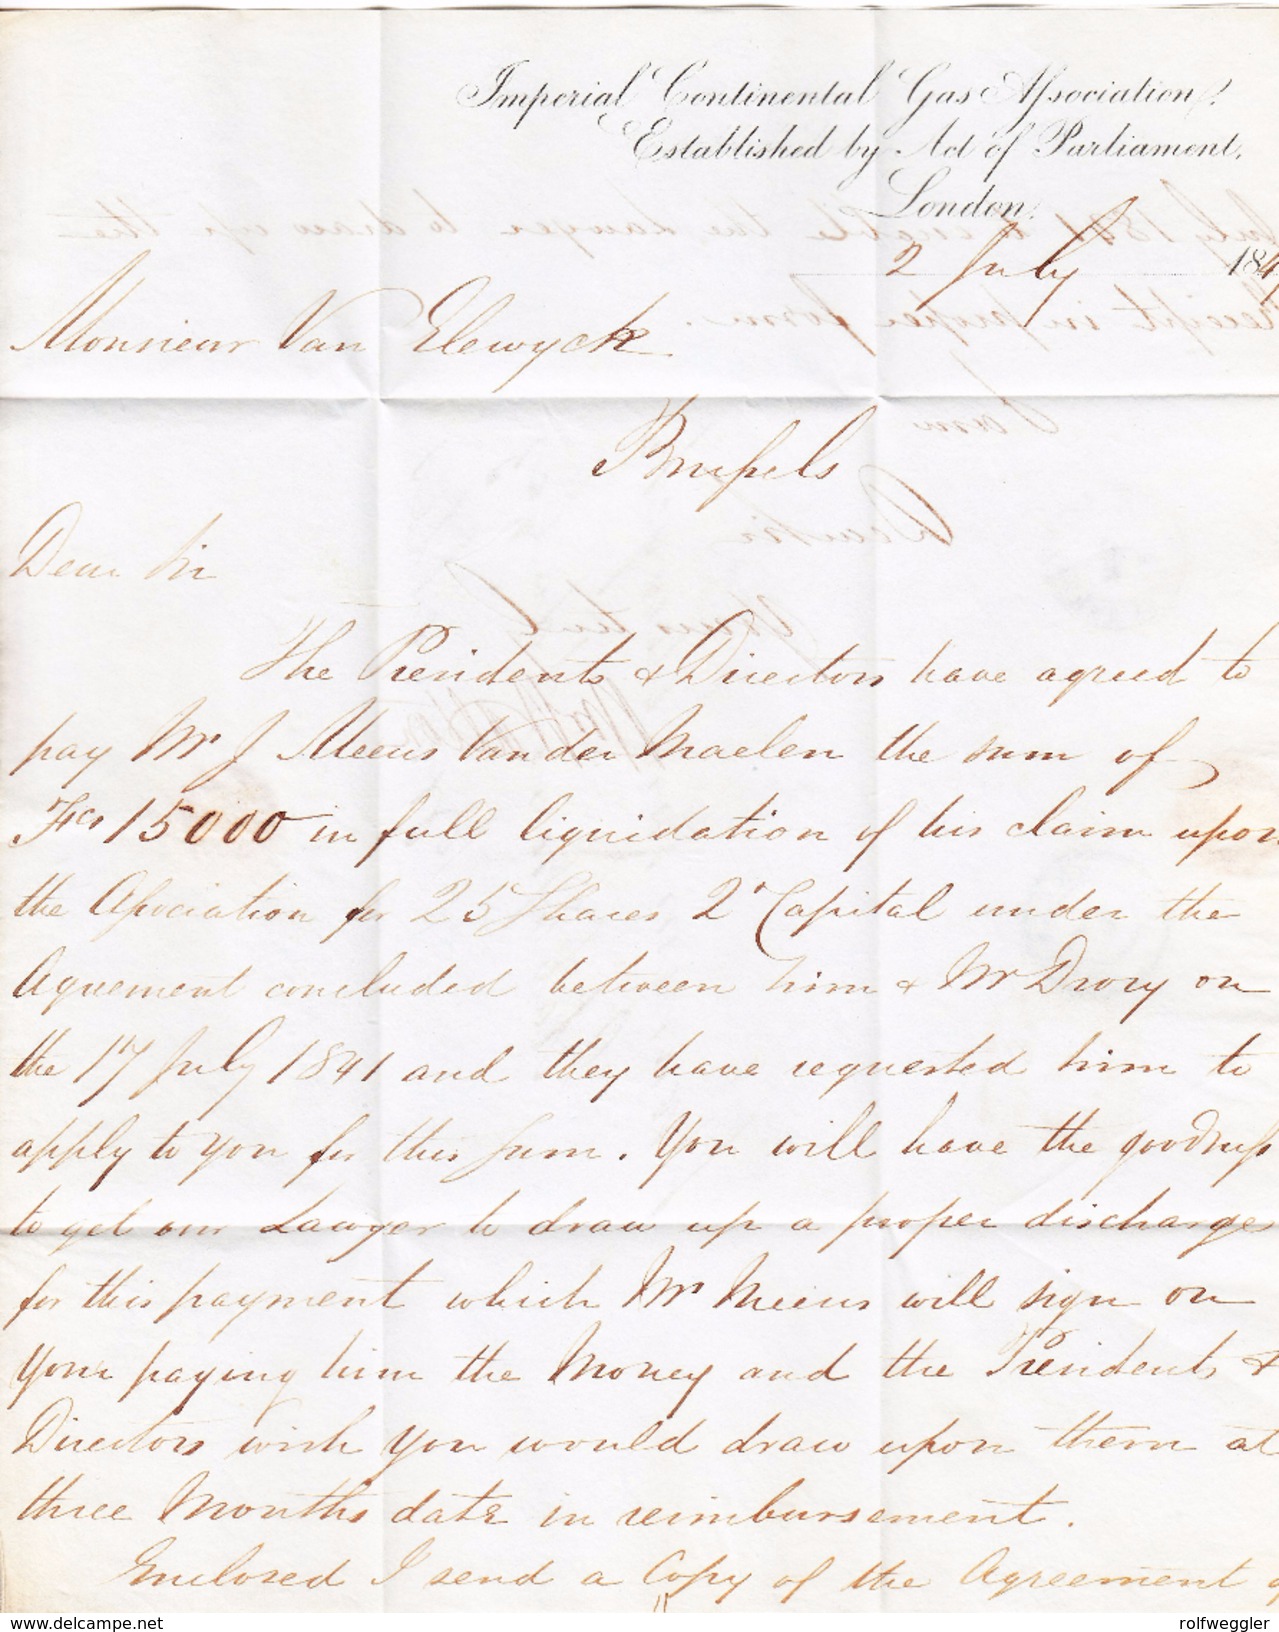 Imperial Continental Gas Association.
Established by Act of Parliament,
London,
2 July 184
Monsieur Van Elewyck
Brussels
Dear Sir
The Presidents & Directors have agreed to
pay Mr J Meeus Van der Maelen the sum of
Fcs 15000 in full liquidation of his claim upon
the Association for 25 Shares 2d Capital under the
Agreement concluded between him & Mr Drory on
the 17 July 1841 and they have requested him to
apply to you for this sum. You will have the goodness
to get our Lawyer to draw up a proper discharge
for this payment which Mr Meeus will sign on
your paying him the Money and the Presidents &
Directors wish you would draw upon them at
three Months date in reimbursement.
Enclosed I send a Copy of the Agreement
delcampe.net
rolfweggler